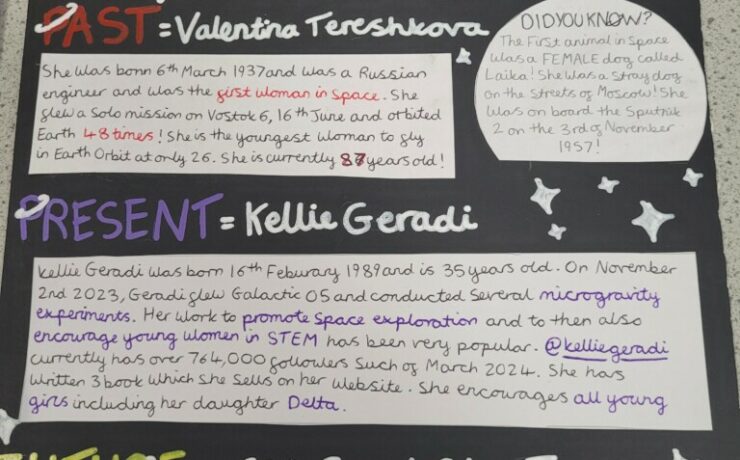 PAST = Valentina Tereshkova
She was born 6th March 1937 and was a Russian
engineer and was the first woman in space. She
flew a solo mission on Vostok 6, 16th June and orbited
Earth 48 times! She is the youngest woman to fly
in Earth Orbit at only 26. She is currently 87 years old!
DID YOU KNOW?
The First animal in Space
was a FEMALE dog called
Laika! She was a stray dog
on the streets of Moscow! She
was on board the Sputnik
2 on the 3rd of November
1957!
PRESENT = Kellie Geradi
Kellie Geradi was born 16th Feburary 1989 and is 35 years old. On November
2nd 2023, Geradi flew Galactic 05 and conducted several microgravity
experiments. Her work to promote space exploration and to then also
encourage young women in STEM has been very popular. @kelliegeradi
currently has over 764,000 followers such of March 2024. She has
written 3 book which she sells on her website. She encourages all young
girls including her daughter Delta.